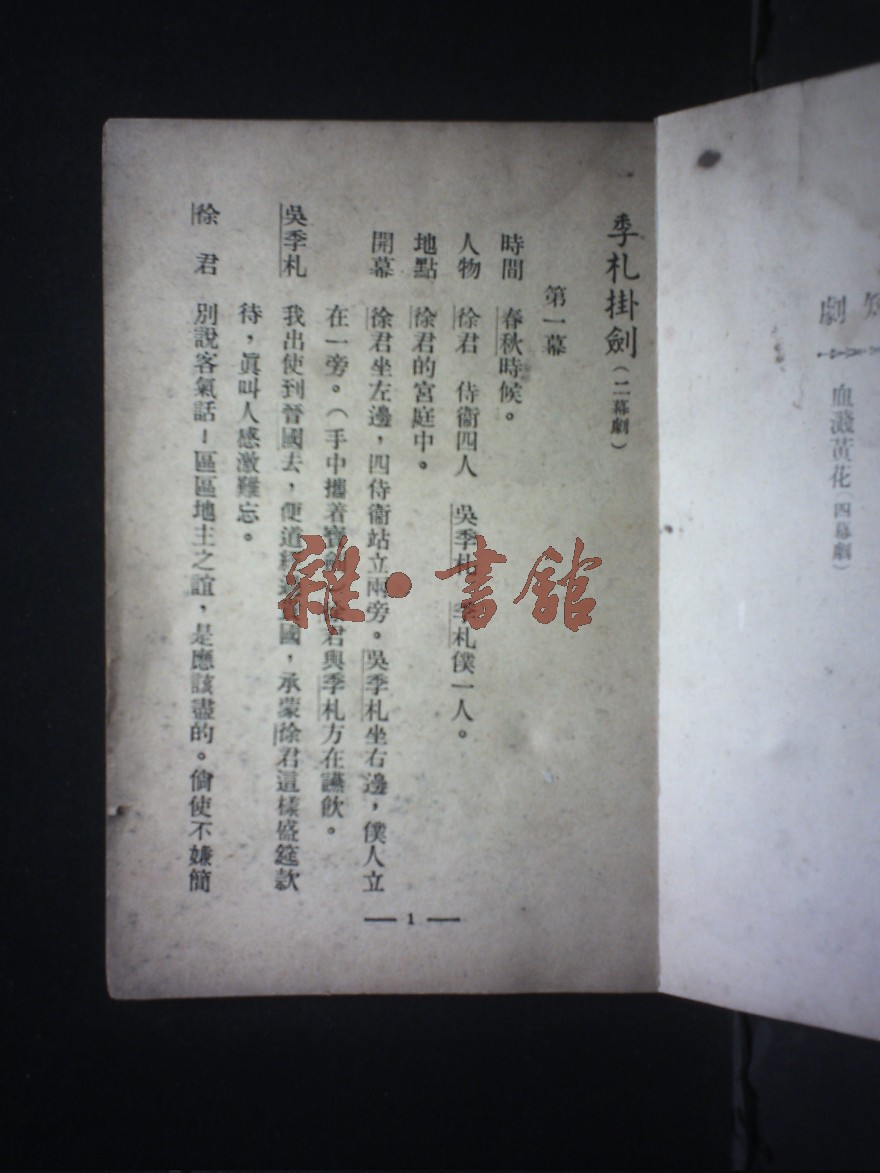 短
劇
血濺黃花(四幕劇)
一 季札掛劍(二幕劇)
第一幕
時間 春秋時候。
人物 徐君 侍衞四人 吳季札 季札僕一人。
地點 徐君的宮庭中。
開幕 徐君坐左邊,四侍衞站立兩旁。吳季札坐右邊,僕人立
在一旁。(手中攜着寶劍)徐君與季札方在讌飲。
吳季札 我出使到晉國去,便道經過貴國,承蒙徐君這樣盛筵款
待,眞叫人感激難忘。
徐君 別說客氣話!區區地主之誼,是應該盡的。倘使不嫌簡
1
雜·書館